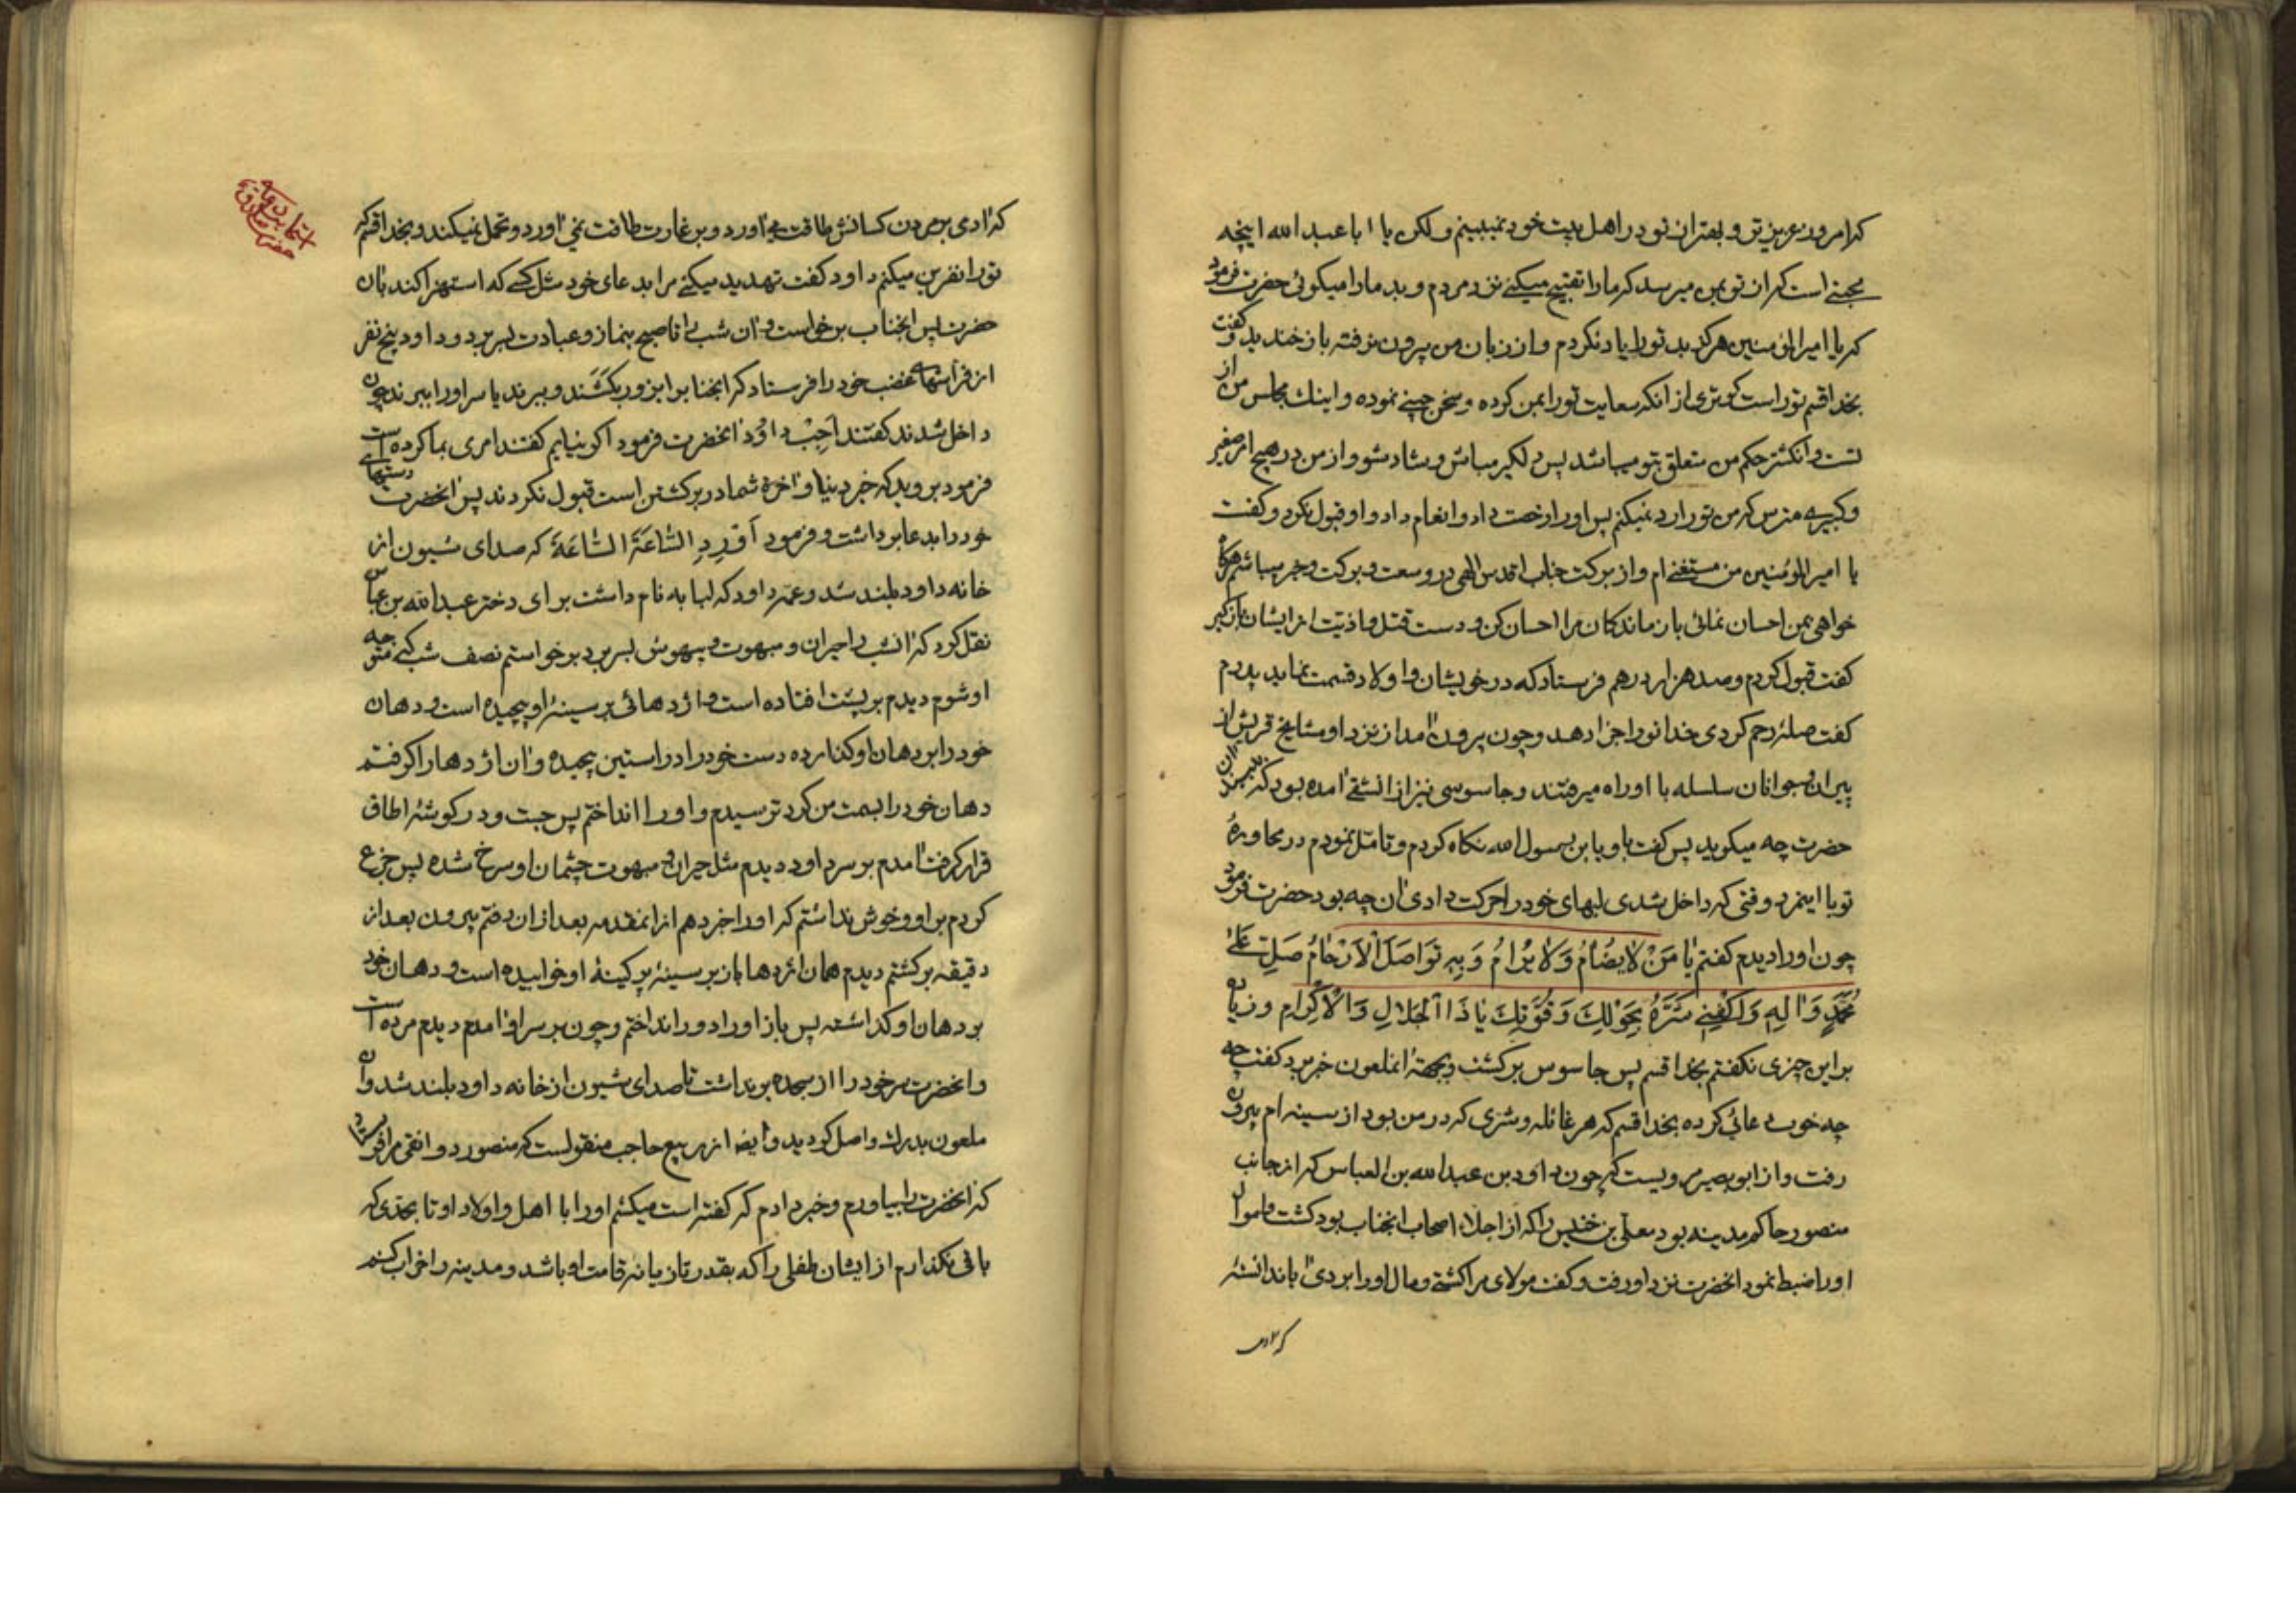 که امروز عزیزتر و بهتر از تو در اهل بیت خود نمیبینم ولکن یا ابا عبد الله اینچه
است که از تو بمن میرسد که ما را تقبیح میکنی نزد مردم و بد ما را میگوئی حضرت فرمود
که یا امیر المؤمنین هرگز بد تو را یاد نکردم و از زبان من بیرون نرفته باز خندید و گفت
بخدا قسم تو راست گوتری از آنکه سعایت تو را بمن کرده و سخن چینی نموده و اینک مجلس من از
تست و انگشتر حکم من متعلق بتو میباشد پس دلگیر مباش و شاد شو و از من در هیچ امر صغیر
و کبیری مترس که من تو را رد نمیکنم پس او را رخصت داد و انعام داد و او قبول نکرد و گفت
یا امیر المؤمنین من مستغنی ام و از برکت جناب اقدس الهی در وسعت و برکت و خیر میباشم هرگاه
خواهی بمن احسان نمائی بازماندگان مرا احسان کن و دست قتل و اذیت از ایشان بازگیر
گفت قبول کردم و صد هزار درهم فرستاد که در خویشان و اولاد قسمت نماید پدرم
گفت صلهٔ رحم کردی خدا تو را جزا دهد و چون بیرون آمد از نزد او مشایخ قریش از
پیران و جوانان سلسله با او راه میرفتند و جاسوسی نیز از آنشقی آمده بود که
حضرت چه میگوید پس گفت باو یابن رسول الله نگاه کردم و تامّل نمودم در محاورهٔ
تو با اینمرد وقتی که داخل شدی لبهای خود را حرکت دادی آن چه بود حضرت فرمود
چون او را دیدم گفتم یا مَنْ لا یُضامُ وَلا یُرامُ وَ بِهِ تَواصَلَ الْاَرْحامُ صَلِّ عَلیٰ
مُحَمَّدٍ وَآلِهِ وَاکْفِنی شَرَّهُ بِحَوْلِکَ وَ قُوَّتِکَ یا ذَا الْجَلالِ وَالْاِکْرام و زیاده
بر این چیزی نگفتم بخدا قسم پس جاسوس برگشت و بجهة انملعون خبر برد گفت چه
چه خوب دعائی کرده بخدا قسم که هر غائله و شری که در من بود از سینه ام بیرون
رفت و از ابو بصیر مرویست که چون داود بن عبد الله بن العباس که از جانب
منصور حاکم مدینه بود معلّی بن خنیس را که از اجلاء اصحاب انجناب بود کشت و اموال
او را ضبط نمود انحضرت نزد او رفت و گفت مولای مرا کشتی و مال او را بردی آیا ندانستهٔ
که آدمی
که آدمی بر مردن کسانش طاقت می آورد و بر غارت طاقت نمی آورد و تحمل نمیکند و بخدا قسم که
تو را نفرین میکنم داود گفت تهدید میکنی مرا بدعای خود مثل کسی که استهزا کند بآن
حضرت پس انجناب برخواست و آن شب را تا صبح بنماز و عبادت بسر برد و داود پنج نفر
از فراشهای غضب خود را فرستاد که انجناب را بزور بکشند و ببرند یا سر او را ببرند چون
داخل شدند گفتند اَجِبْ داوُد انحضرت فرمود اگر نیایم گفتند امری بما کرده است
فرمود بروید که خیر دنیا و آخرة شما در برگشتن است قبول نکردند پس انحضرت دستهای
خود را بدعا برداشت و فرمود السّاعَةَ السّاعَةَ که صدای شیون از
خانه داود بلند شد و عمّه داود که لبابه نام داشت برای دختر عبد الله بن عباس
نقل کرد که آنشب را حیران و مبهوت و بیهوش بسر برد برخواستم نصف شب که متوجه
او شوم دیدم بر پشت افتاده است و اژدهائی بر سینهٔ او پیچیده است و دهان
خود را بر دهان او گذارده دست خود را در آستین پیچیده و آن اژدها را گرفتم
دهان خود را بسمت من کرد ترسیدم و او را انداختم پس جست و در گوشهٔ اطاق
قرار گرفت آمدم بر سر داود دیدم مثل حیران و مبهوت چشمان او سرخ شده پس جزع
کردم بر او و خوش نداشتم که او را خبر دهم از انمقدمه بعد از ان رفتم بیرون بعد از
دقیقه برگشتم دیدم همان اژدها باز بر سینهٔ پر کینهٔ او خوابیده است و دهان خود
بر دهان او گذاشته پس باز او را دور انداختم و چون بر سر او آمدم دیدم مرده است
و انحضرت سر خود را از سجده برنداشت تا صدای شیون از خانه داود بلند شد و آن
ملعون بدرک واصل گردید و ایضا از ربیع حاجب منقولست که منصور دوانقی مرا فرستاد
که انحضرت را بیاورم و خبر دادم که گفته است میکشم او را با اهل و اولاد او تا بحدی که
باقی نگذارم از ایشان طفلی را که بقدر تازیانه قامت او باشد و مدینه را خراب کنم
حضرت صادق